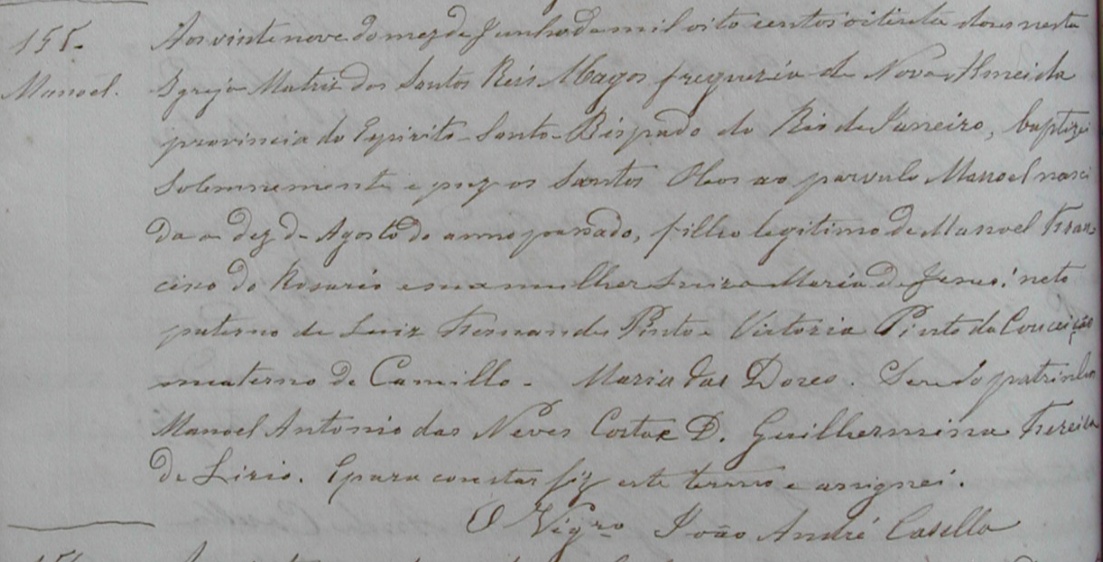 155.
Manoel.
Aos vinte nove do mez de Junho de mil oito centos oitenta dous nesta
Igreja Matriz dos Santos Reis Magos freguezia de Nova Almeida
provincia do Espirito-Santo-Bispado do Rio de Janeiro, baptizei
Solemnemente e puz os Santos Oleos ao parvulo Manoel nasci
do a dez de Agosto do anno passado, filho legitimo de Manoel Fran
cisco do Rosario e sua mulher Luiza Maria de Jesus; neto
paterno de Luiz Fernandes Pinto e Victoria Pinto da Conceição
materno de Camillo - Maria das Dores. Sendo padrinhos
Manoel Antonio das Neves Costa e D. Guilhermina Pereira
de Lirio. E para constar fiz este termo e assignei.
O Vigro João André Casella